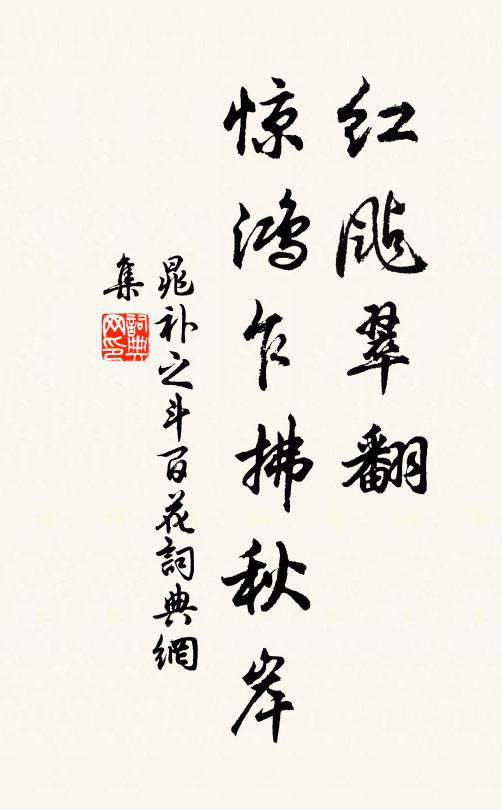 红飐翠翻
惊鸿乍拂秋岸
晁补之斗百花詞典網
集
詞典
网印